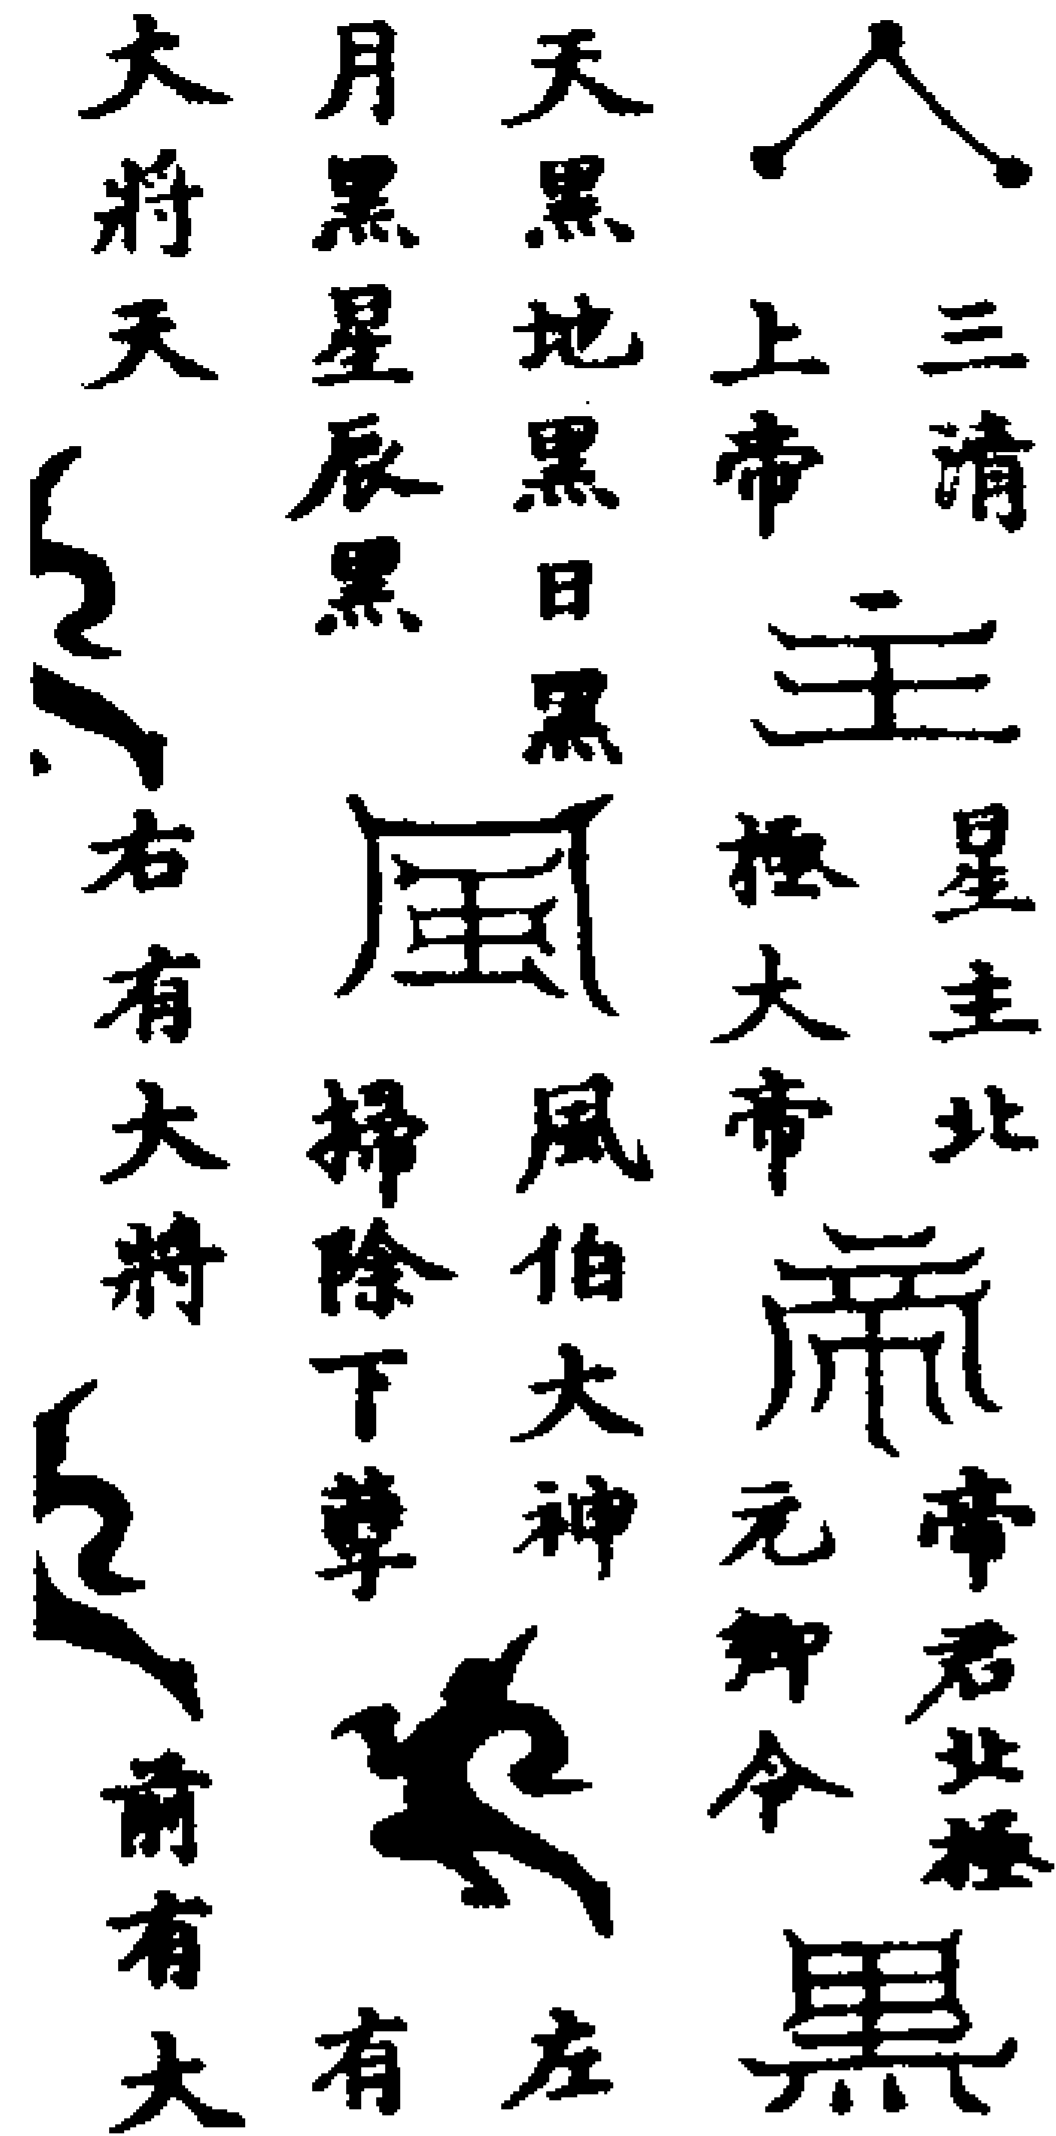 三清
上帝
主
星主北
極大帝
帝
帝君北極
元令
黑
天黑地黑日黑
月黑星辰黑
風伯大神
掃除下
左
有
大將天
右有大將
前有大